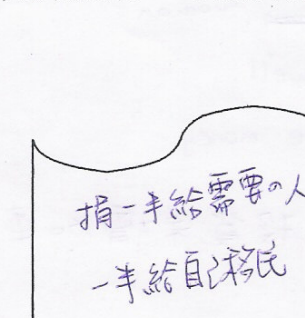 捐一半給需要の人
一半給自己移民